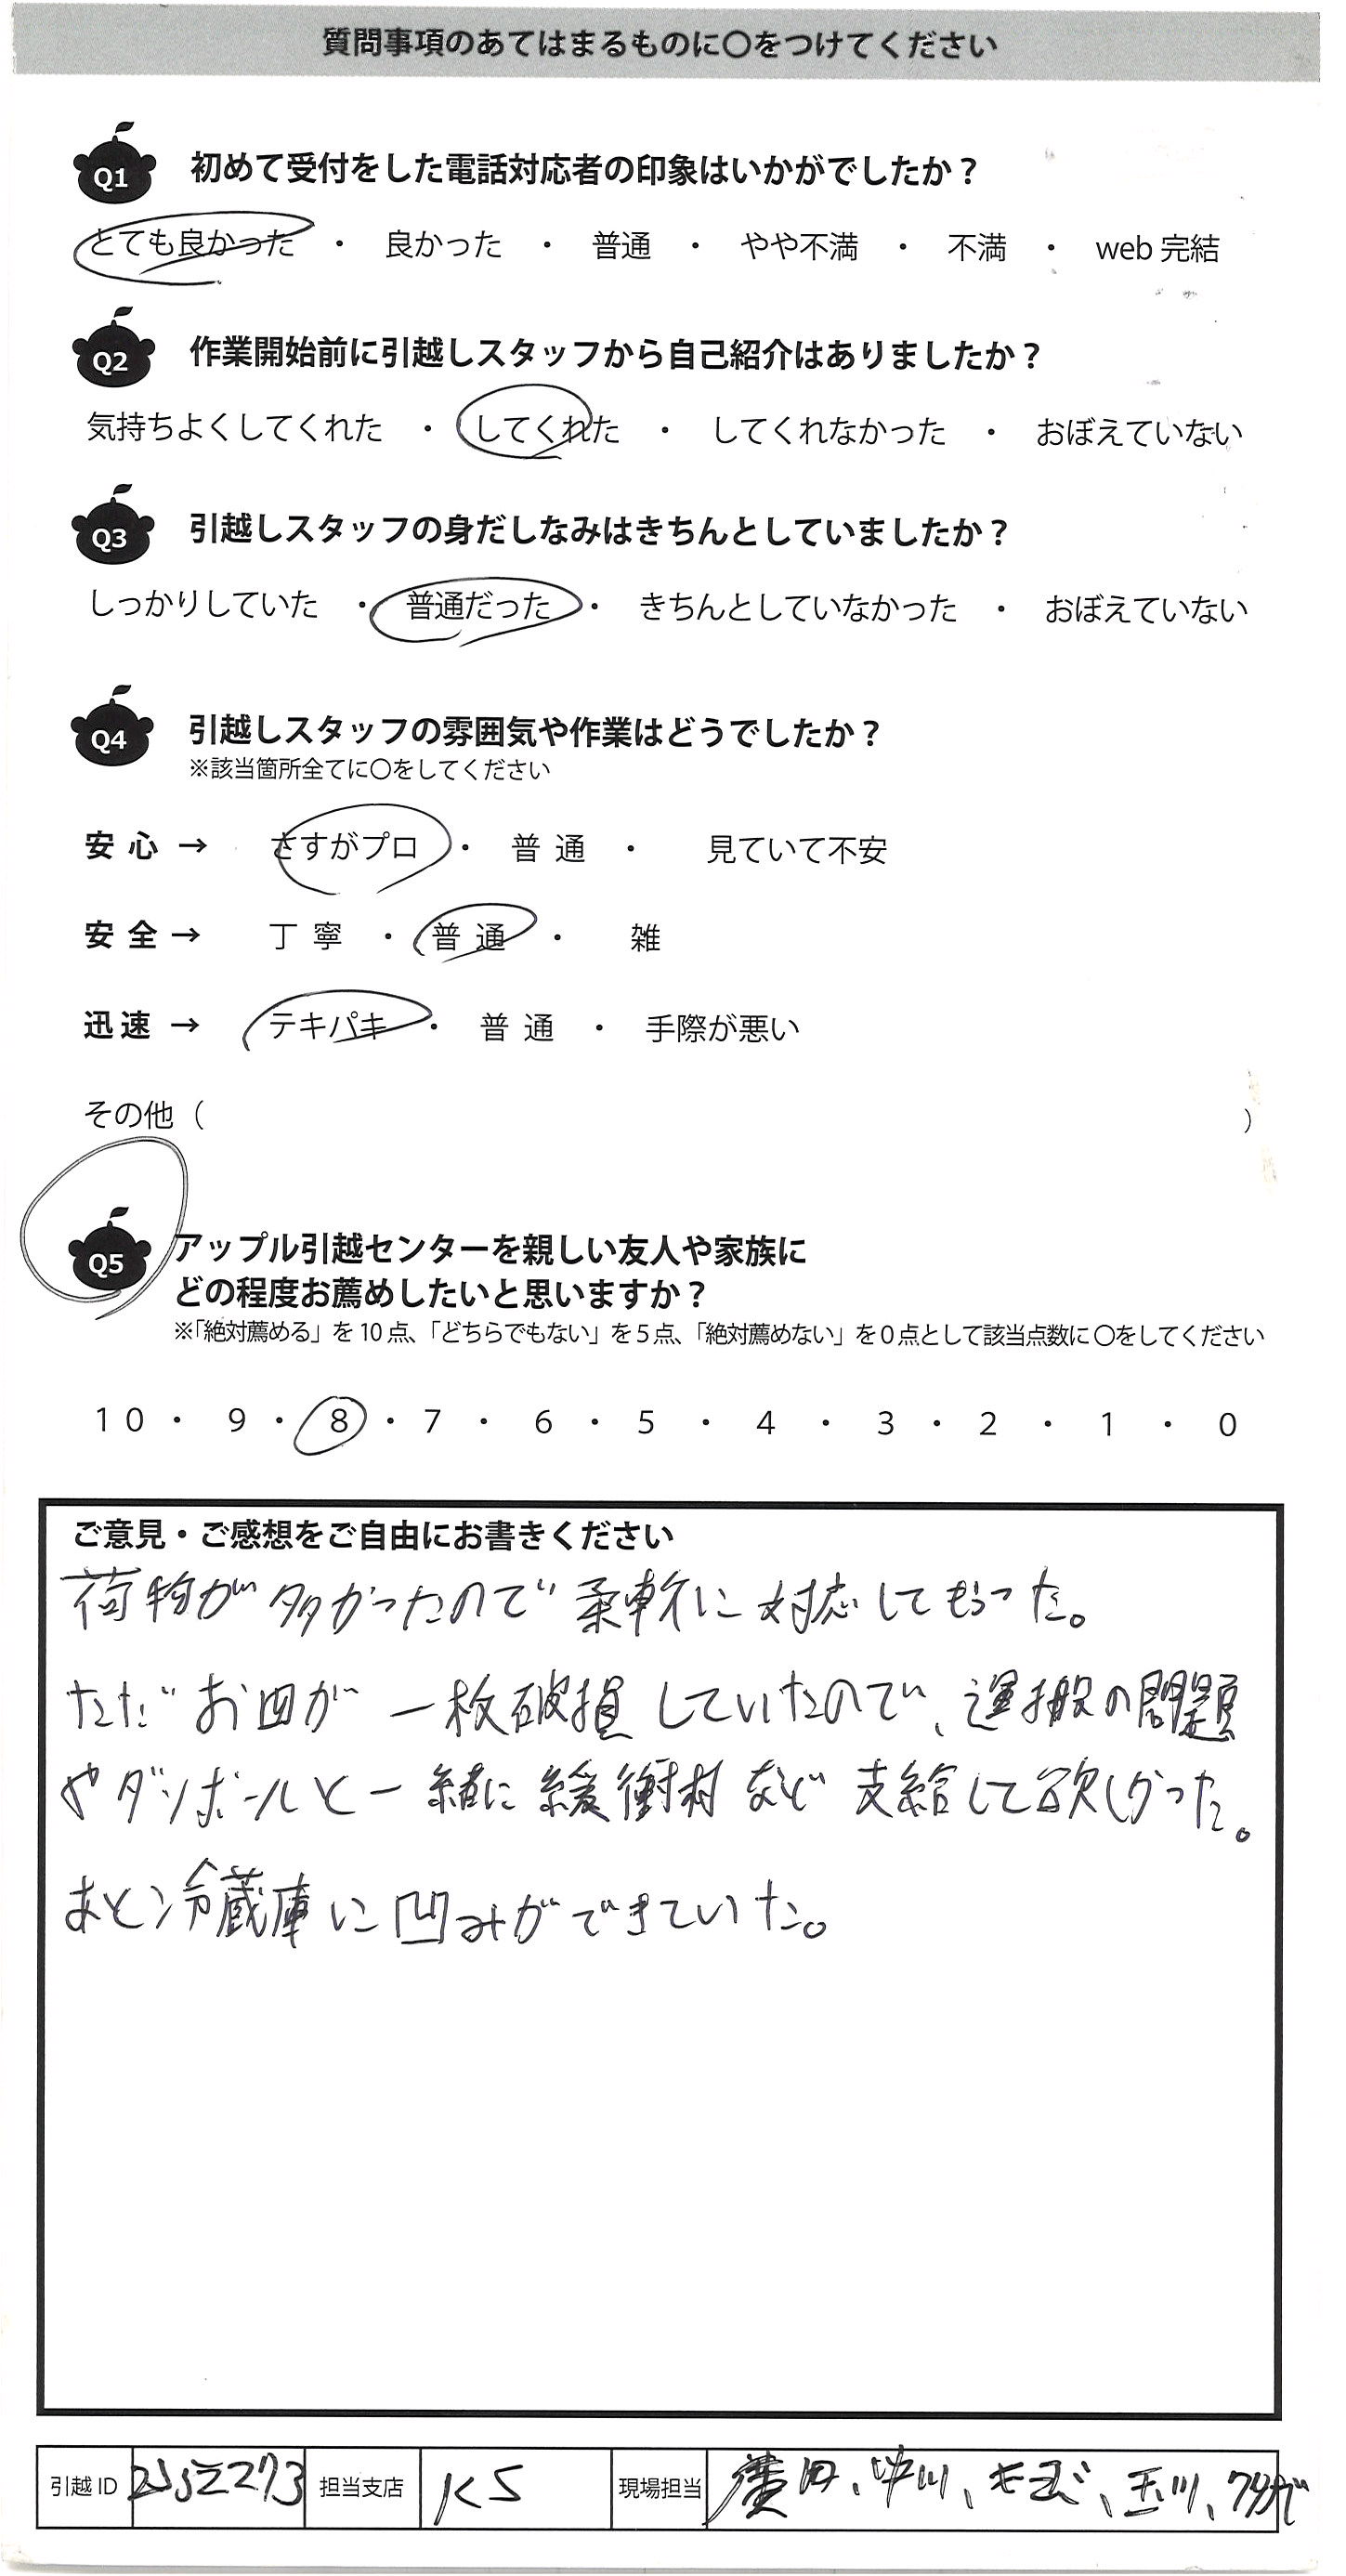 質問事項のあてはまるものに〇をつけてください
Q1 初めて受付をした電話対応者の印象はいかがでしたか？
とても良かった ・ 良かった ・ 普通 ・ やや不満 ・ 不満 ・ web 完結
Q2 作業開始前に引越しスタッフから自己紹介はありましたか？
気持ちよくしてくれた ・ してくれた ・ してくれなかった ・ おぼえていない
Q3 引越しスタッフの身だしなみはきちんとしていましたか？
しっかりしていた ・ 普通だった ・ きちんとしていなかった ・ おぼえていない
Q4 引越しスタッフの雰囲気や作業はどうでしたか？
※該当箇所全てに〇をしてください
安心 → さすがプロ ・ 普通 ・ 見ていて不安
安全 → 丁寧 ・ 普通 ・ 雑
迅速 → テキパキ ・ 普通 ・ 手際が悪い
その他（ ）
Q5 アップル引越センターを親しい友人や家族に
どの程度お薦めしたいと思いますか？
※「絶対薦める」を10点、「どちらでもない」を5点、「絶対薦めない」を0点として該当点数に〇をしてください
10 ・ 9 ・ 8 ・ 7 ・ 6 ・ 5 ・ 4 ・ 3 ・ 2 ・ 1 ・ 0
ご意見・ご感想をご自由にお書きください
荷物が多かったので柔軟に対応してもらった。
ただお皿が一枚破損していたので、運搬の問題
やダンボールと一緒に緩衝材など支給して欲しかった。
あと冷蔵庫に凹みができていた。
引越ID 担当支店 KS 現場担当 廣田、中川、 、玉川、